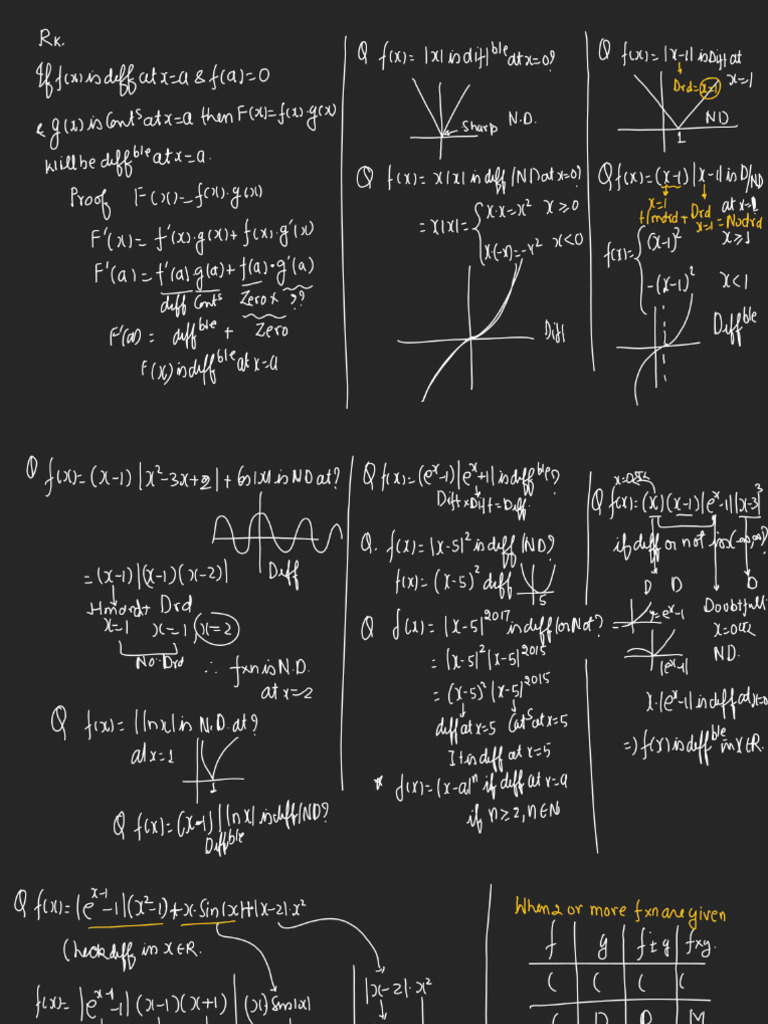 Rk.
If f(x) is diff at x=a & f(a)=0
& g(x) is Contˢ at x=a then F(x)=f(x)·g(x)
will be diffᵇˡᵉ at x=a.
Proof F(x)=f(x)·g(x)
F'(x)= f'(x)·g(x)+f(x)·g'(x)
F'(a)= f'(a) g(a)+f(a)·g'(a)
diff Contˢ Zero × ??
F'(a)= diffᵇˡᵉ + Zero
F(x) is diffᵇˡᵉ at x=a
Q f(x)= |x| is diffᵇˡᵉ at x=0?
Sharp N.D.
Q f(x)= x|x| is diff/ND at x=0?
= x|x|= { x·x=x² x≥0
x(-x)=-x² x<0
Diff
Q f(x)=|x-1| is Diff at
x=1
Drd=x=1
ND
1
Q f(x)=(x-1)|x-1| is D/ND
at x=1
x=1 Drd
Hmard + x=1 = No drd
f(x)= { (x-1)² x≥1
-(x-1)² x<1
Diffᵇˡᵉ
Q f(x)=(x-1)|x²-3x+2|+Cos|x| is ND at?
= (x-1)|(x-1)(x-2)|
Diff
Hmard + Drd
x=1 x=1, x=2
No Drd
∴ fxn is N.D.
at x=2
Q f(x)= |lnx| is N.D. at?
at x=1
1
Q f(x)=(x-1)|lnx| is diff/ND?
Diffᵇˡᵉ
Q f(x)=(eˣ-1)|eˣ+1| is diffᵇˡᵉ?
Diff × Diff = Diff.
Q. f(x)= |x-5|² is diff/ND?
f(x)= (x-5)² diff
5
Q f(x)= |x-5|²⁰¹⁷ is diff or Not?
= |x-5|²|x-5|²⁰¹⁵
= (x-5)²|x-5|²⁰¹⁵
diff at x=5 Contˢ at x=5
It is diff at x=5
* f(x)=(x-a|ⁿ if diff at x=a
if n≥2, n∈N
Q f(x)=(x)(x-1)|eˣ-1||x-3|³
if diff or not in (-∞,∞)
D D D
y=eˣ-1
Doubtfull
|eˣ-1|
ND.
x·|eˣ-1| is diff at x=0
⇒ f(x) is diffᵇˡᵉ in x∈R.
Q f(x)= |eˣ⁻¹-1|(x²-1)+x·Sin|x|+|x-2|·x²
Check diff in x∈R.
f(x)= |eˣ⁻¹-1|(x-1)(x+1) | (x) Sin|x| | |x-2|·x²
When 2 or more fxn are given
f g f±g f×g.
C C C C
C D D M